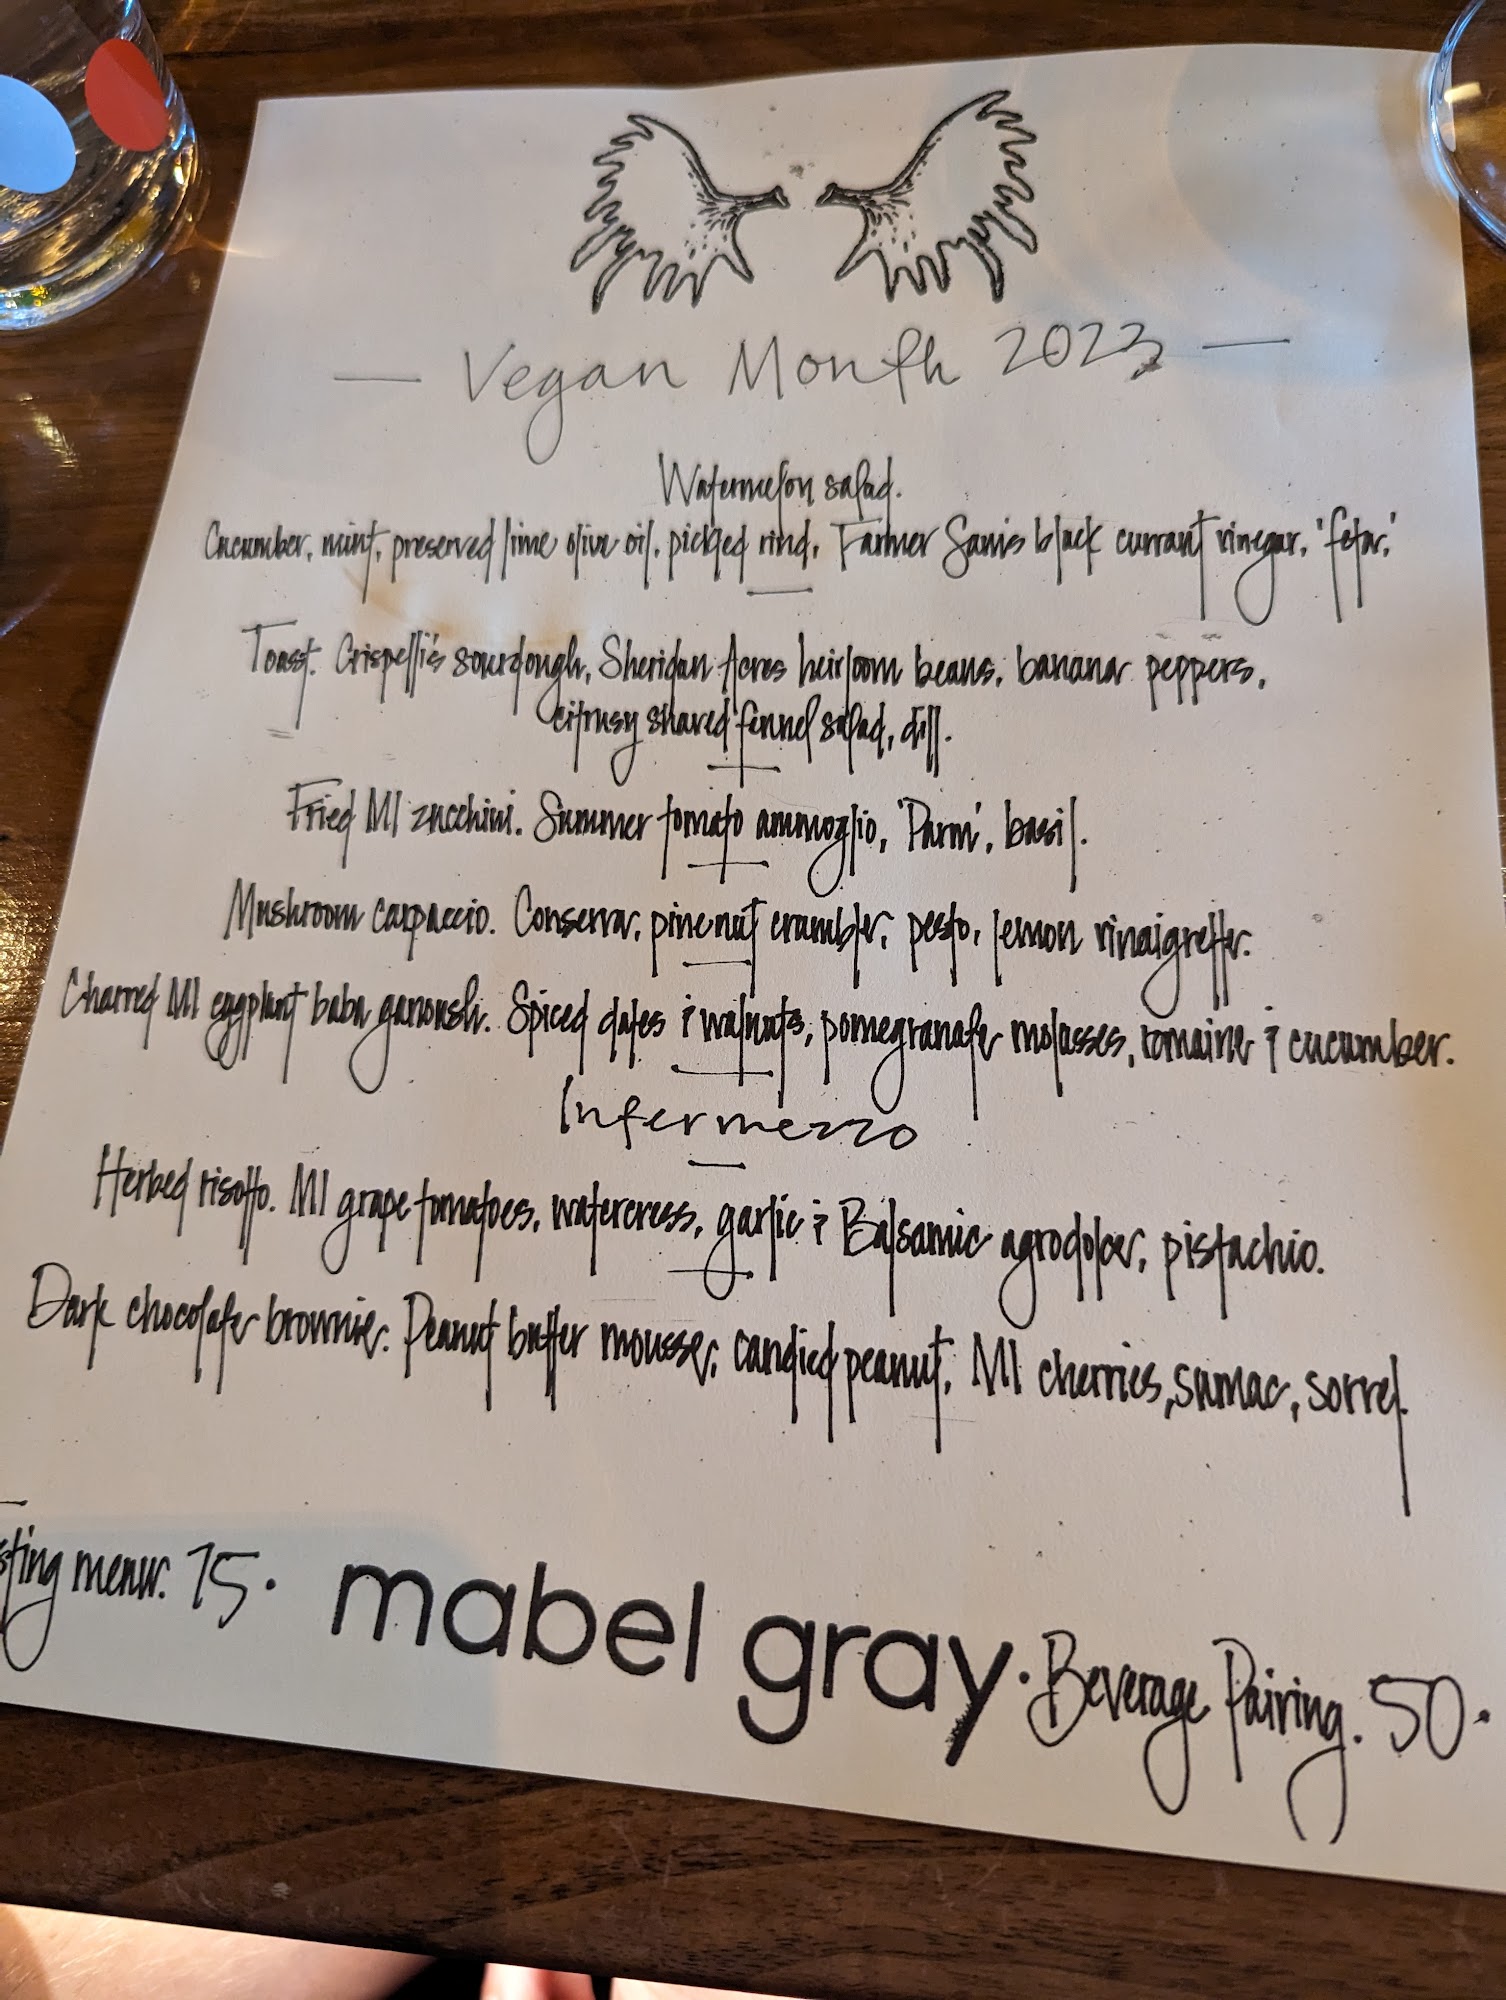 — Vegan Month 2023 —
Watermelon salad.
Cucumber, mint, preserved lime olive oil, pickled rind, Farmer Sam's black currant vinegar, 'feta,'
Toast. Crispelli's sourdough, Sheridan Acres heirloom beans, banana peppers,
citrusy shaved fennel salad, dill.
Fried MI zucchini. Summer tomato ammoglio, 'Parm', basil.
Mushroom carpaccio. Conserva, pinenut crumble, pesto, lemon vinaigrette.
Charred MI eggplant baba ganoush. Spiced dates & walnuts, pomegranate molasses, romaine & cucumber.
Intermezzo
Herbed risotto. MI grape tomatoes, watercress, garlic & Balsamic agrodolce, pistachio.
Dark chocolate brownie. Peanut butter mousse, candied peanut, MI cherries, sumac, sorrel.
sting menu. 75.
mabel gray.
Beverage Pairing. 50.